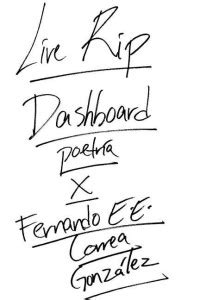 Live Rip
Dashboard
poetría
X
Fernando E.E.
Correa
González